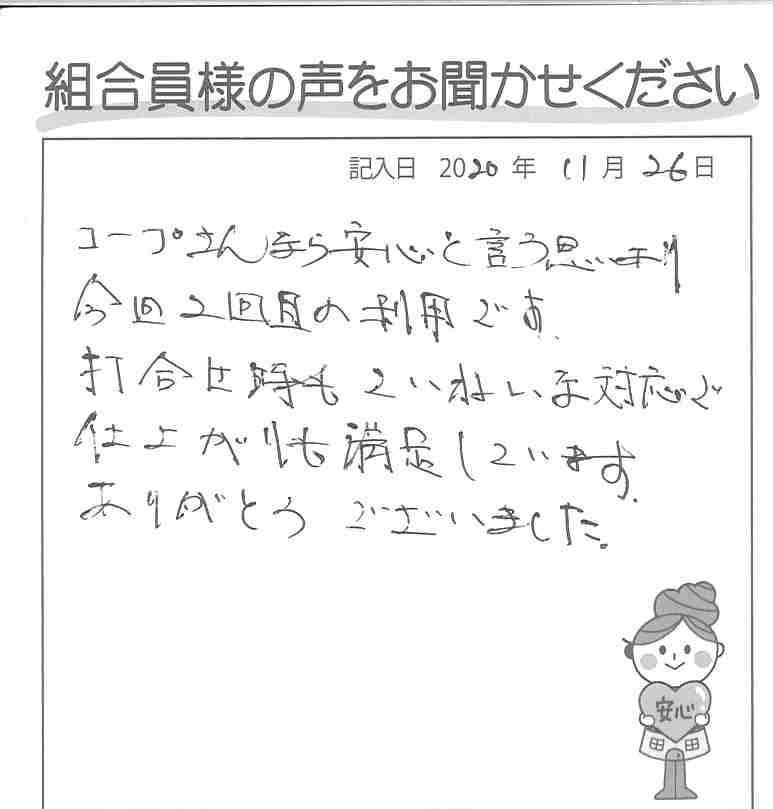 組合員様の声をお聞かせください
記入日 2020年 11月 26日
コープさんなら安心と言う思いより
今回2回目の利用です。
打合せ時もていねいな対応で
仕上がりも満足しています。
ありがとう ございました。
安心